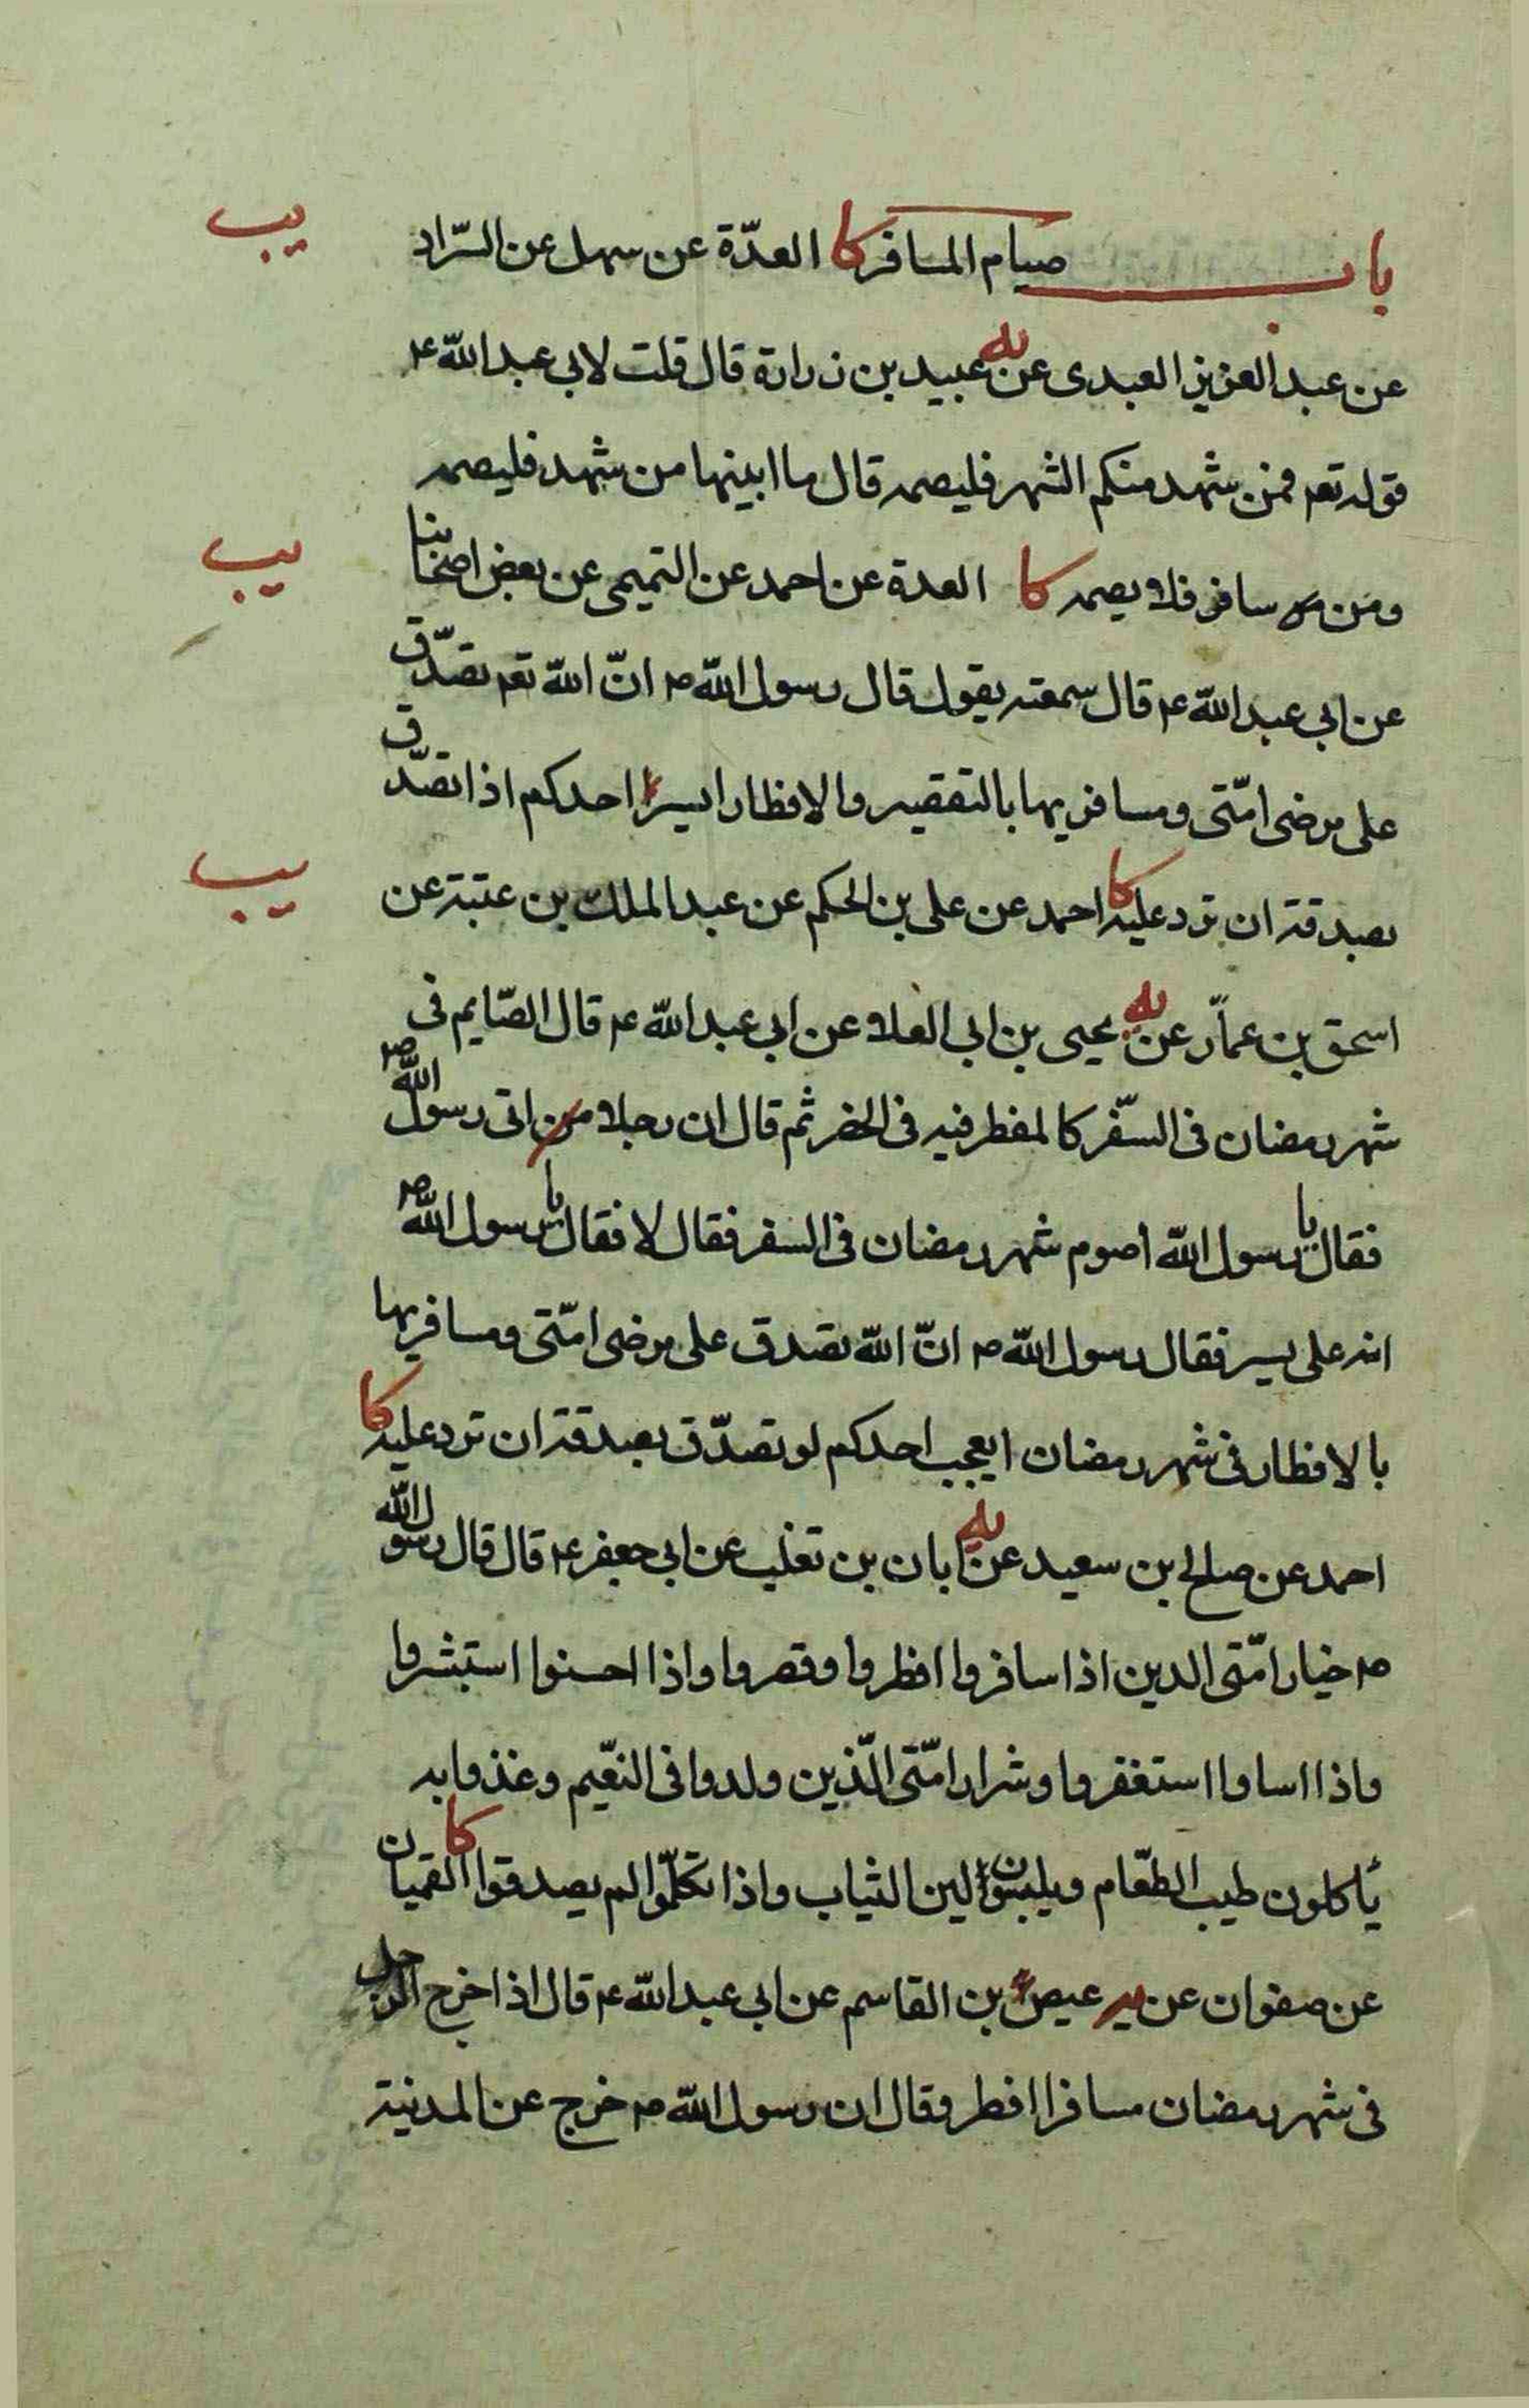 باب صيام المسافر كا العدّة عن سهل عن السّراد يب
عن عبد العزيز العبدى عن يه عبيد بن زرارة قال قلت لابي عبد الله ع
قوله تعم فمن شهد منكم الشهر فليصمه قال ما ابينها من شهد فليصمه
ومن سافر فلا يصمه كا العدة عن احمد عن التميمى عن بعض اصحابنا يب
عن ابي عبد الله ع قال سمعته يقول قال رسول الله ص انّ الله تعم تصدّق
على مرضى امّتى ومسافريها بالتقصير والافطار ايسرّ احدكم اذا تصدّق
بصدقة ان ترد عليه كا احمد عن على بن الحكم عن عبد الملك بن عتبة عن يب
اسحق بن عمّار عن يه يحيى بن ابي العلا عن ابي عبد الله ع قال الصّايم فى
شهر رمضان فى السّفر كالمفطر فيه فى الحضر ثم قال ان رجلا اتى رسول الله ص
فقال يا رسول الله أصوم شهر رمضان فى السفر فقال لا فقال يا رسول الله ص
انه على يسير فقال رسول الله ص انّ الله تصدق على مرضى امّتى ومسافريها
بالافطار فى شهر رمضان ايعجب احدكم لو تصدّق بصدقة ان ترد عليه كا
احمد عن صالح بن سعيد عن يه ابان بن تغلب عن ابي جعفر ع قال قال رسول الله
ص خيار امّتى الدين اذا سافروا افطروا وقصروا واذا احسنوا استبشروا
واذا اساوا استغفروا وشرار امّتى الّذين ولدوا فى النعّيم وغذوا به
يأكلون طيب الطعّام ويلبسون لين الثياب واذا تكلمّوا لم يصدقوا كا القميان
عن صفوان عن عيص بن القاسم عن ابي عبد الله ع قال اذا خرج الرجل
فى شهر رمضان مسافرا افطر وقال ان رسول الله ص خرج عن المدينة